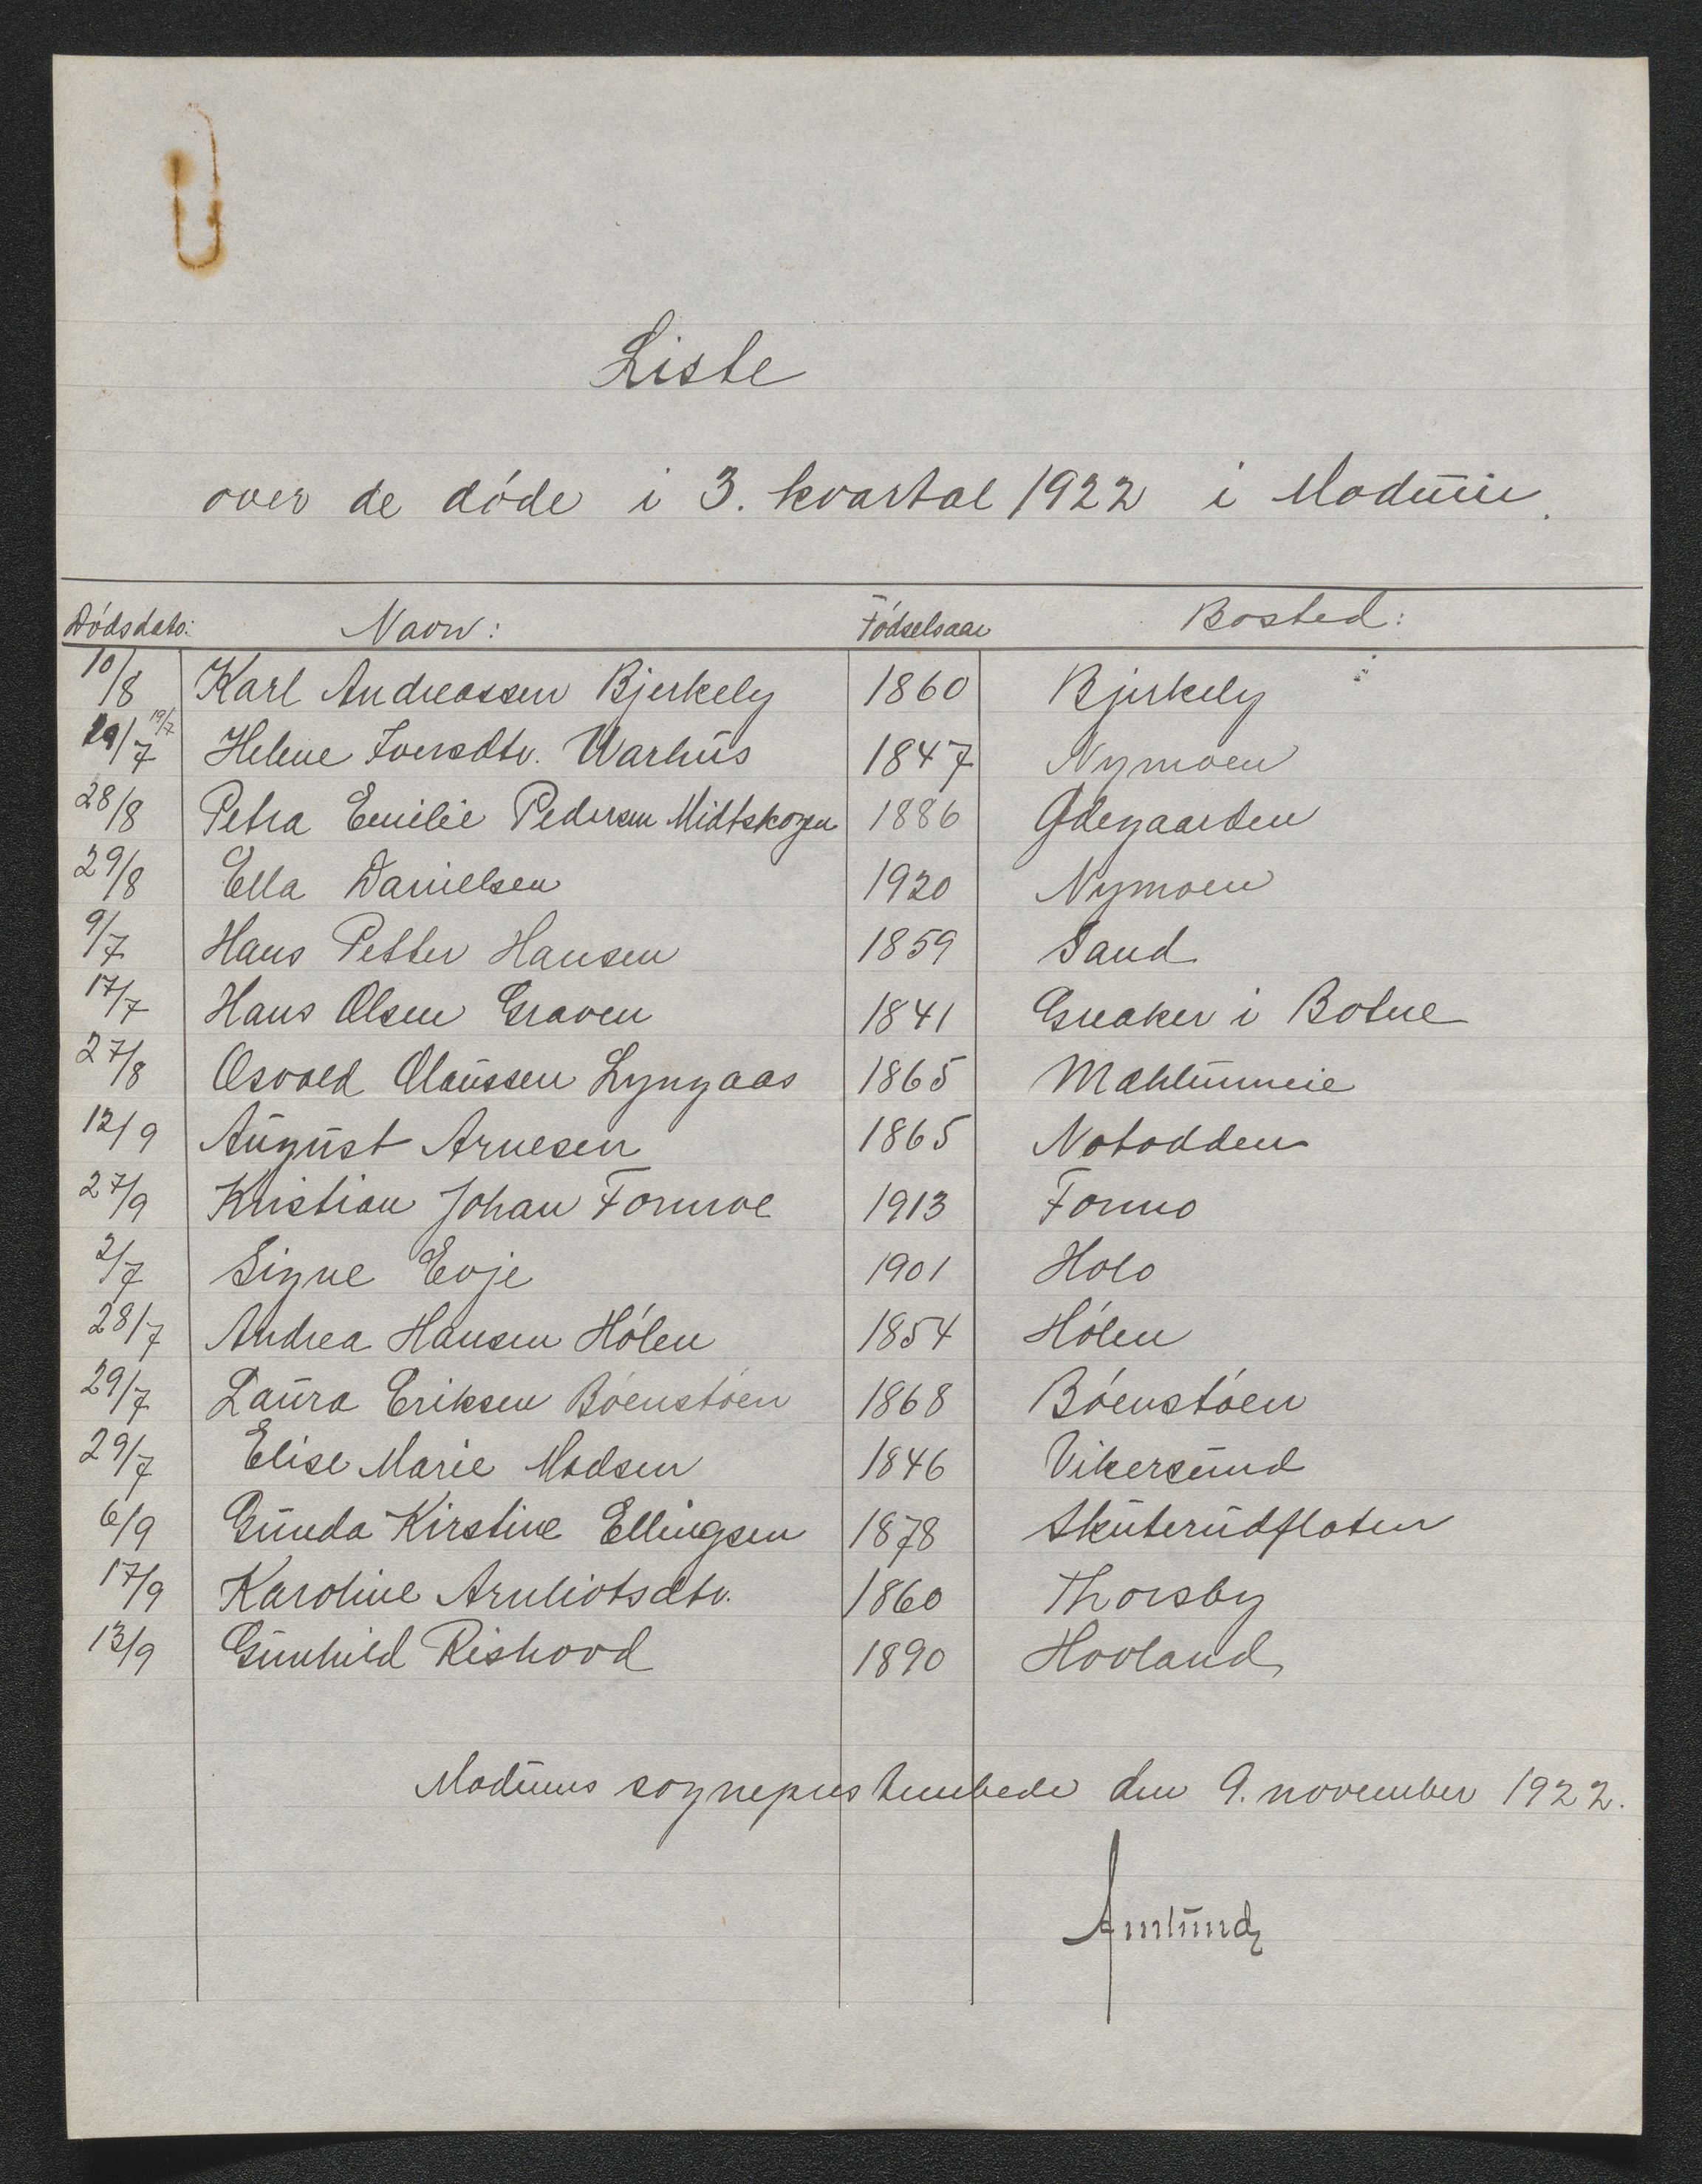 Liste
over de døde i 3. kvartal 1922 i Modum.
Dødsdato: Navn: Fødselsaar Bosted:
10/8 Karl Andreassen Bjerkely 1860 Bjerkely
19/7 19/7 Helene Iversdtr. Warhus 1847 Nymoen
28/8 Petra Emilie Pedersen Midtskogen 1886 Ødegaarden
29/8 Ella Danielsen 1920 Nymoen
9/7 Hans Petter Hansen 1859 Sand
17/7 Hans Olsen Graven 1841 Greaker i Botne
27/8 Osvald Olaussen Lyngaas 1865 Mæhlumeie
12/9 August Arnesen 1865 Notodden
27/9 Kristian Johan Formoe 1913 Formo
2/7 Signe Evje 1901 Holo
28/7 Andrea Hansen Hólen 1854 Hólen
29/7 Laura Eriksen Bóenstóen 1868 Bóenstóen
29/7 Elise Marie Madsen 1846 Vikersund
6/9 Gunda Kirstine Ellingsen 1878 Skuterudflaten
17/9 Karoline Arnliotsdtr. 1860 Thorsby
13/9 Gunhild Rishovd 1890 Hovland
Modums sogneprestembede den 9. november 1922.
Amlund